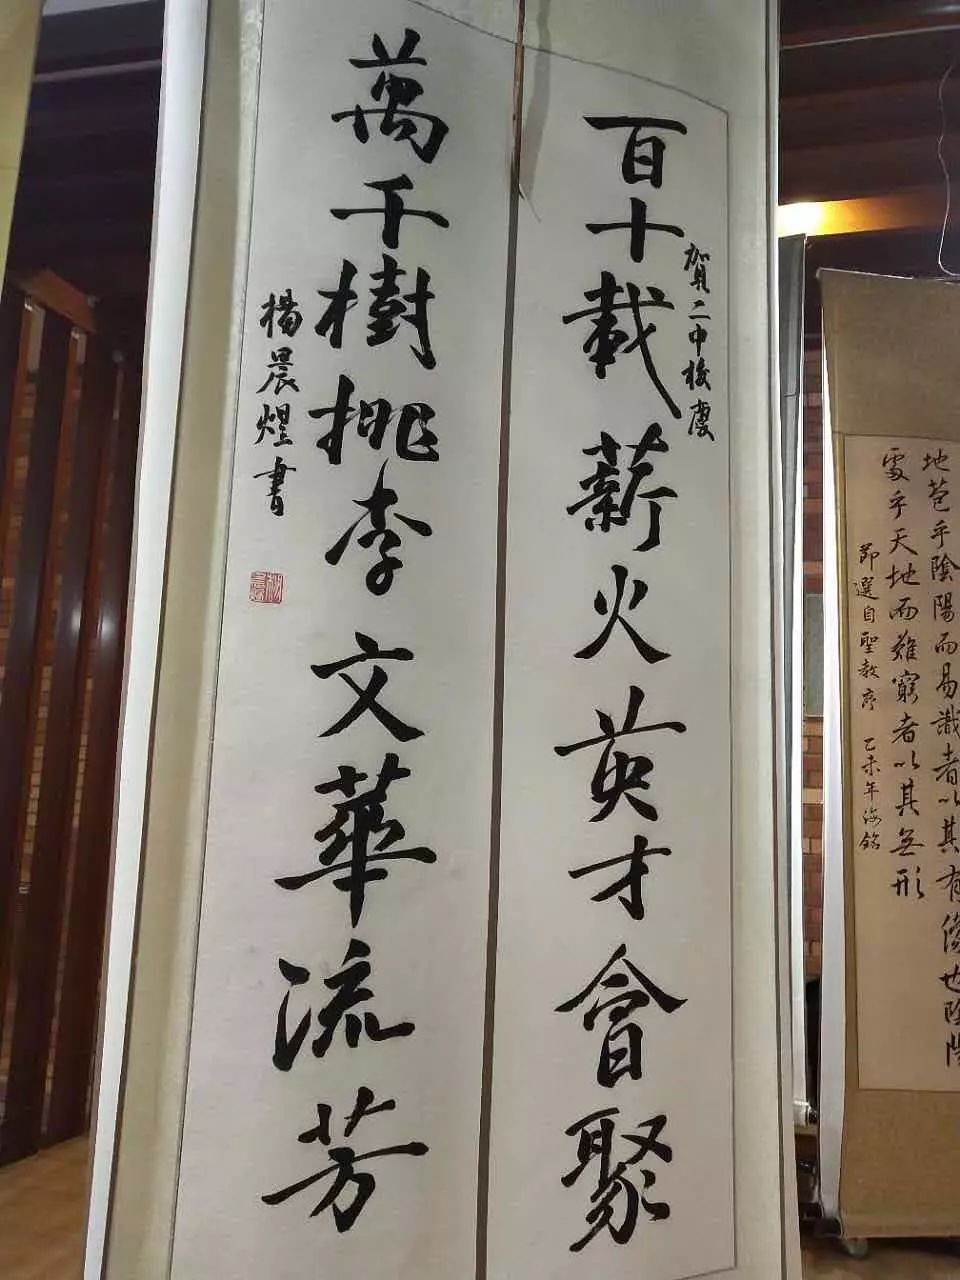 百十載薪火英才會聚
賀二中校慶
萬千樹桃李文華流芳
楊晨煜書
地苞乎陰陽而易識者以其有像也陰陽
處乎天地而難窮者以其無形
節選自聖教序 乙未年海銘